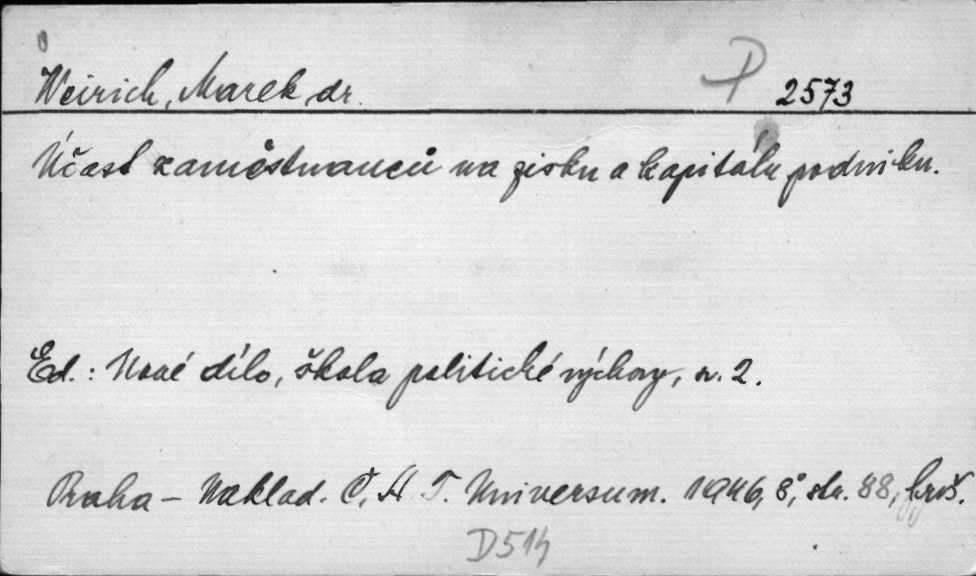 Weirich, Marek, dr. P 2573
Účast zaměstnanců na zisku a kapitálu podniku.
Ed.: Nové dílo, škola politické výchovy, sv. 2.
Praha - Naklad. Č. A. T. Universum. 1946, 8°, str. 88, brož.
D514